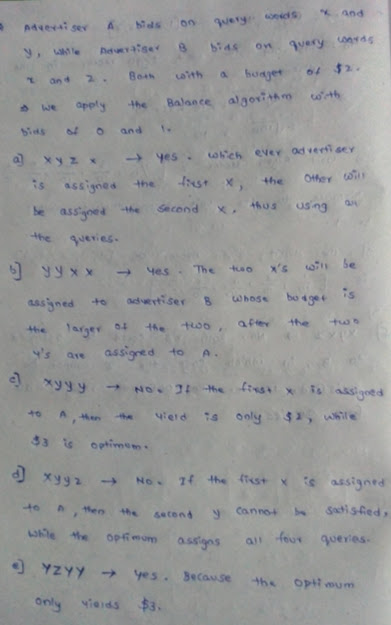 * Advertiser A bids on query words x and
y, while Advertiser B bids on query words
x and z. Both with a budget of $2.
⇒ We apply the Balance algorithm with
bids of 0 and 1.
a] x y z x → yes. which ever advertiser
is assigned the first x, the other will
be assigned the second x, thus using all
the queries.
b] y y x x → yes. The two x's will be
assigned to advertiser B whose budget is
the larger of the two, after the two
y's are assigned to A.
c] x y y y → No. If the first x is assigned
to A, then the yield is only $2, while
$3 is optimum.
d] x y y z → No. If the first x is assigned
to A, then the second y cannot be satisfied,
while the optimum assigns all four queries.
e] Y Z Y Y → yes. Because the optimum
only yields $3.